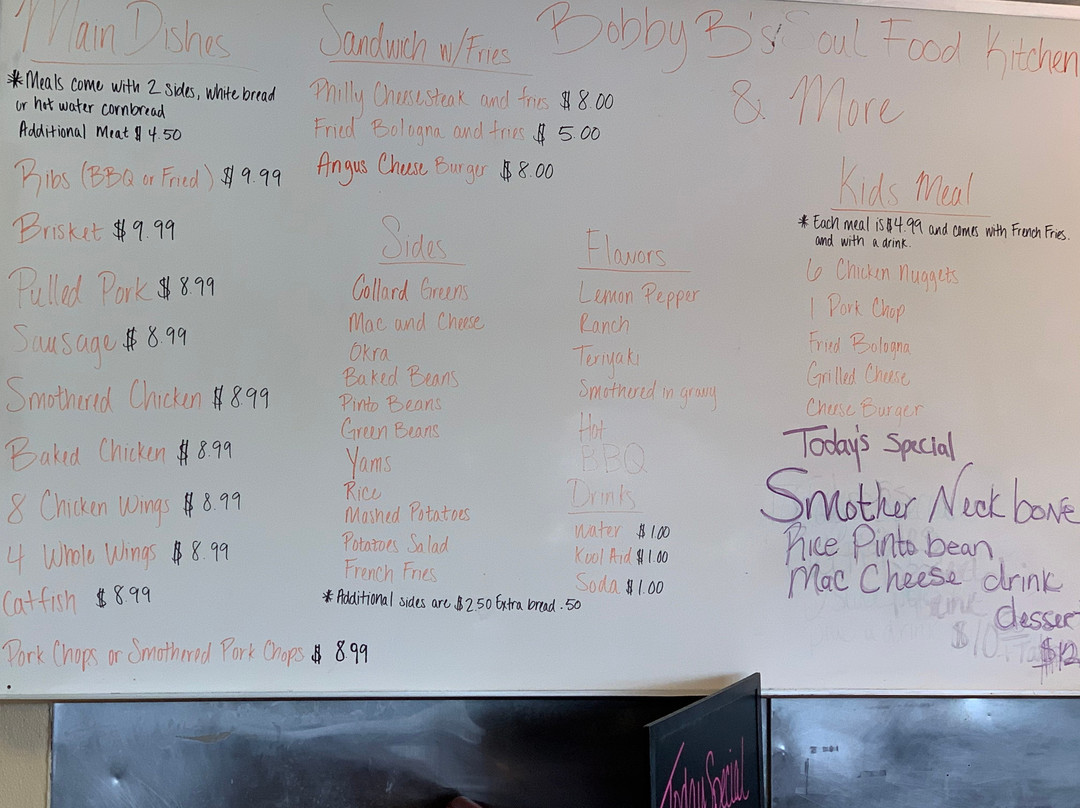 Main Dishes
*Meals come with 2 sides, white bread
or hot water cornbread
Additional Meat $4.50
Ribs (BBQ or Fried) $9.99
Brisket $9.99
Pulled Pork $8.99
Sausage $8.99
Smothered Chicken $8.99
Baked Chicken $8.99
8 Chicken Wings $8.99
4 Whole Wings $8.99
Catfish $8.99
Pork Chops or Smothered Pork Chops $8.99
Sandwich w/Fries
Philly Cheesesteak and fries $8.00
Fried Bologna and fries $5.00
Angus Cheese Burger $8.00
Sides
Collard Greens
Mac and Cheese
Okra
Baked Beans
Pinto Beans
Green Beans
Yams
Rice
Mashed Potatoes
Potatoes Salad
French Fries
*Additional sides are $2.50 Extra bread .50
Flavors
Lemon Pepper
Ranch
Teriyaki
Smothered in gravy
Hot
BBQ
Drinks
Water $1.00
Kool Aid $1.00
Soda $1.00
Bobby B's Soul Food Kitchen
& More
Kids Meal
*Each meal is $4.99 and comes with French Fries.
and with a drink.
6 Chicken Nuggets
1 Pork Chop
Fried Bologna
Grilled Cheese
Cheese Burger
Today's Special
Smother Neck bone
Rice Pinto bean
Mac Cheese drink
desser
$12
Today Special